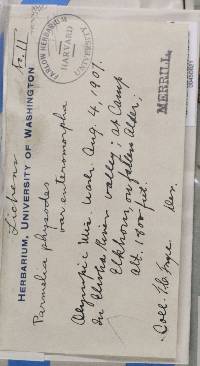 No. 11
FARLOW HERBARIUM
HARVARD
UNIVERSITY
MERRILL
Lichens
HERBARIUM, UNIVERSITY OF WASHINGTON
Parmelia physodes
var enteromorpha
Olympic Mts. Wash. Aug. 4, 1907.
In Elwha River valley; at Camp
Elkhorn, on fallen alder,
alt. 1400 feet.
Coll. T. C. Frye